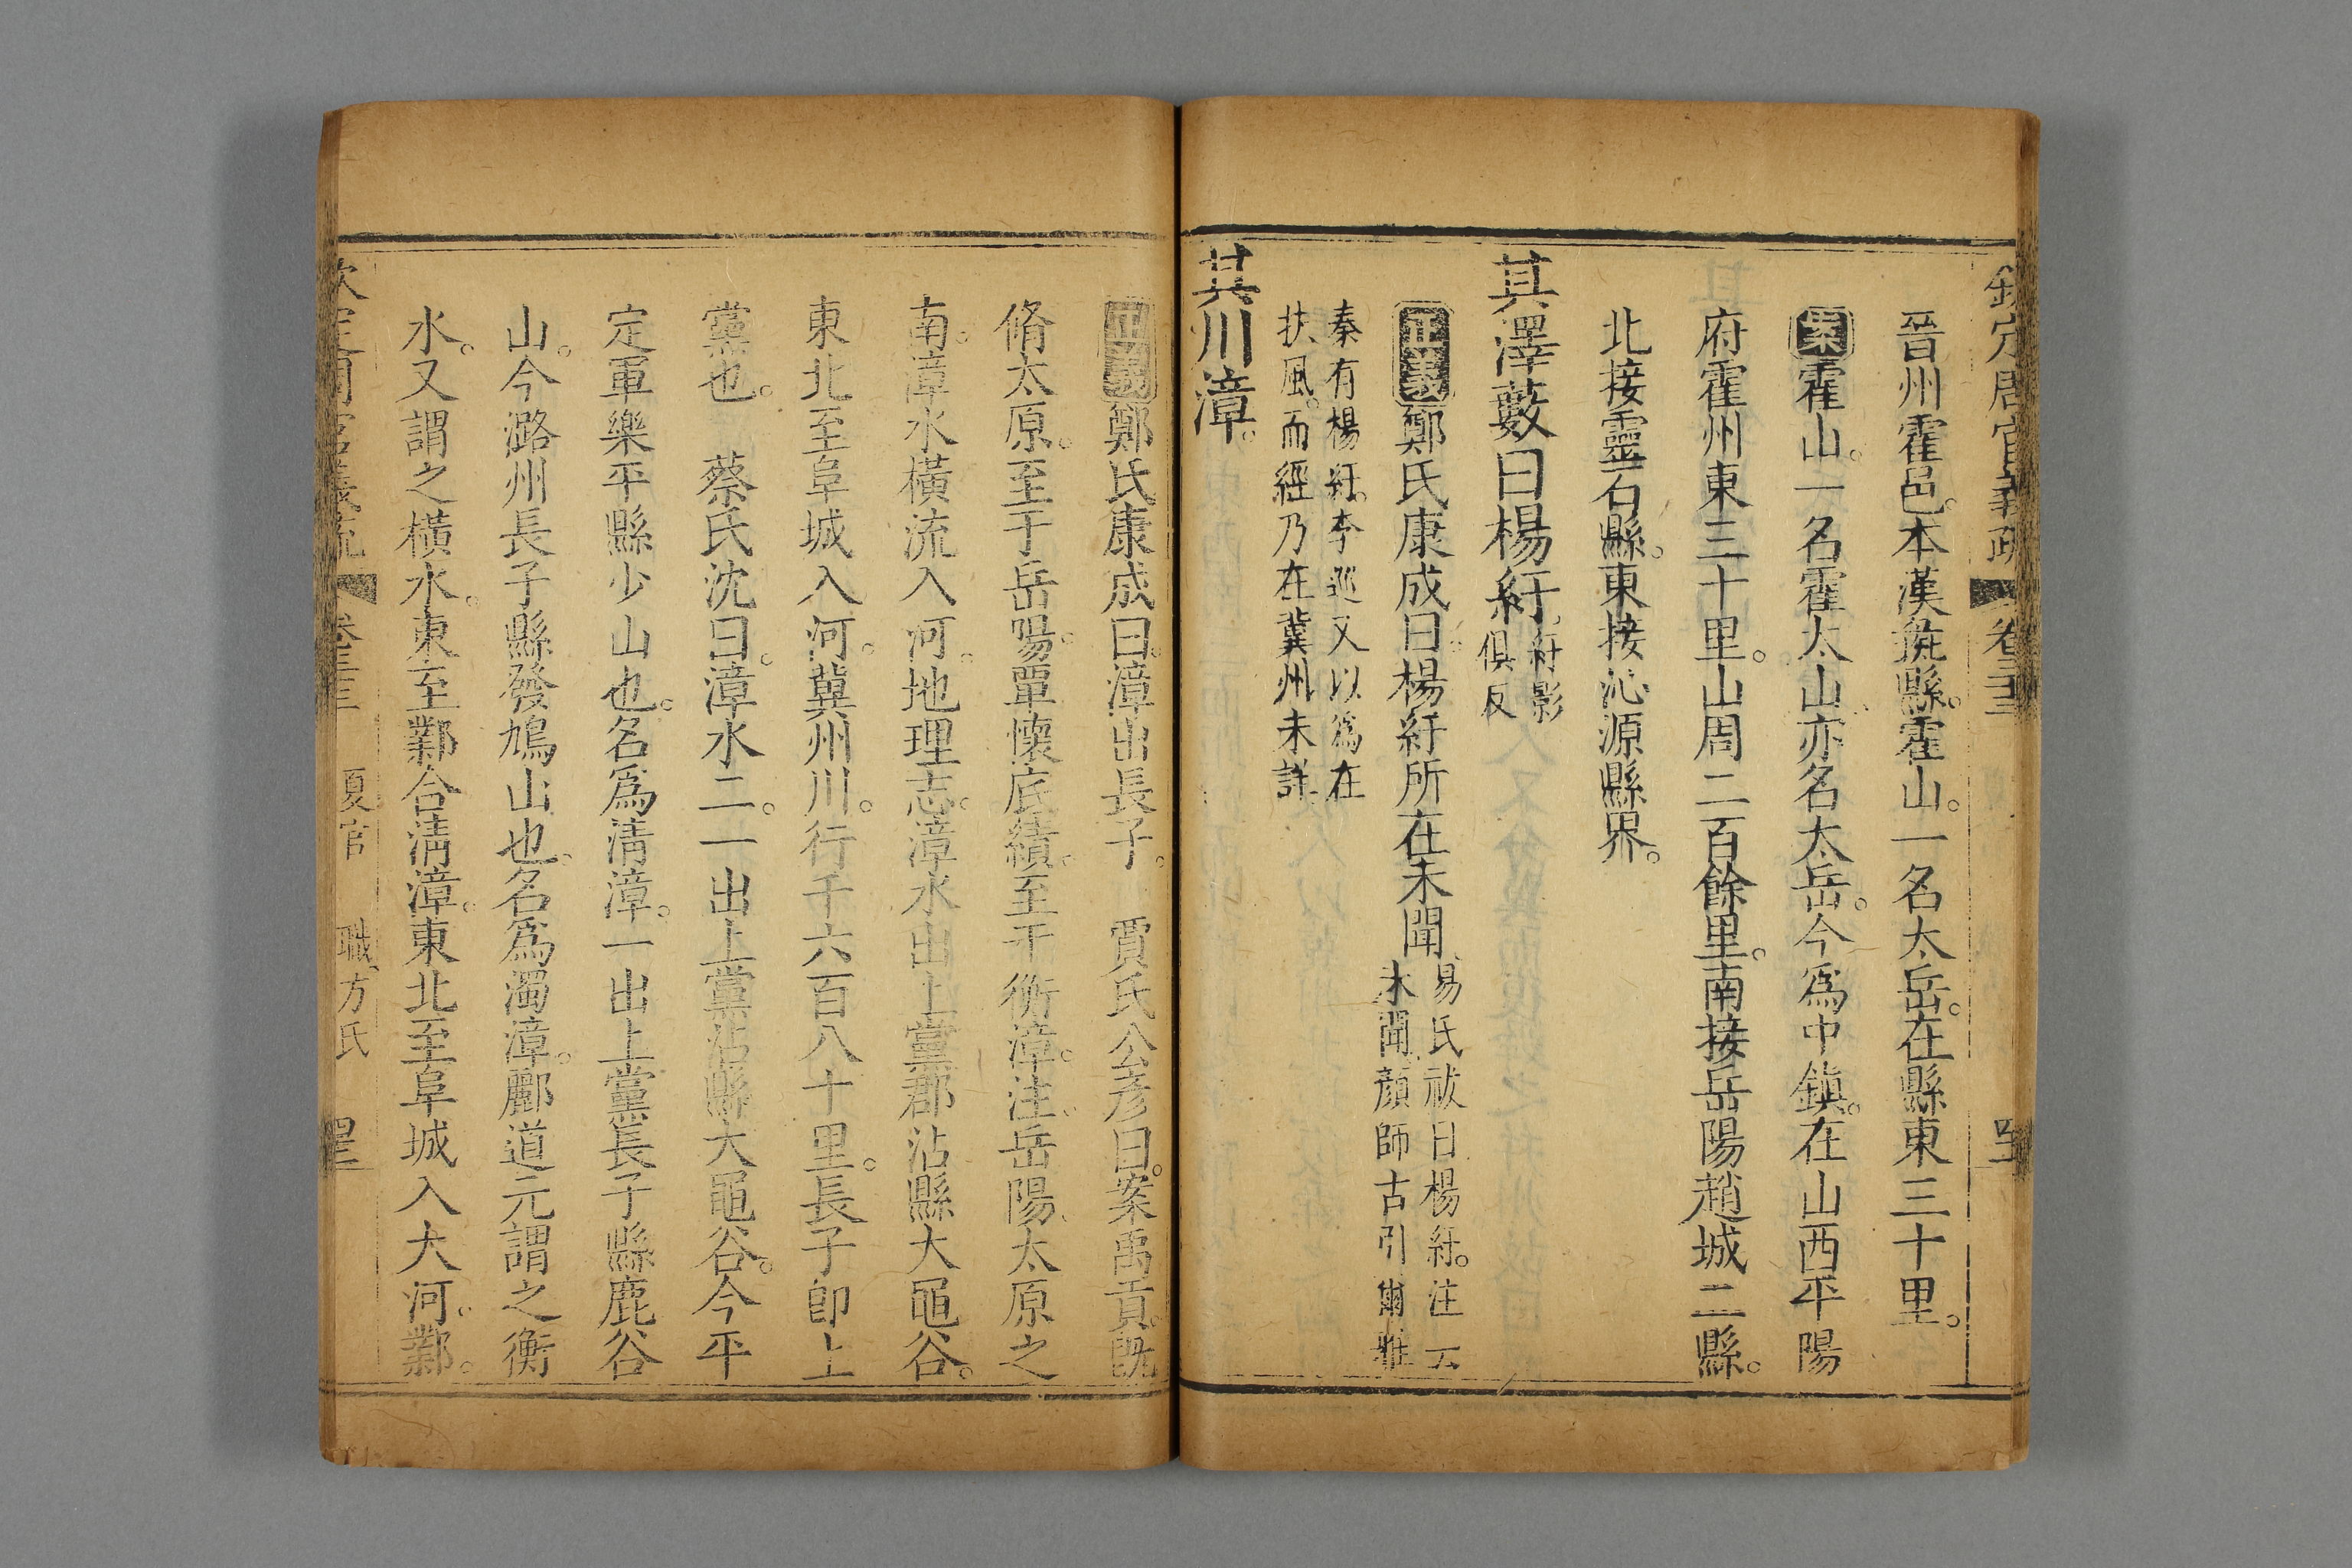 欽定周官義疏 卷三十三
晉州霍邑。本漢彘縣。霍山。一名太岳。在縣東三十里。
案霍山。一名霍太山。亦名太岳。今為中鎮。在山西平陽
府霍州東三十里。山周二百餘里。南接岳陽趙城二縣。
北接靈石縣。東接沁源縣界。
其澤藪曰楊紆。紆影俱反
正義鄭氏康成曰。楊紆所在未聞。易氏祓曰楊紆。注云未聞。顏師古引爾雅
秦有楊紆。李巡又以為在扶風。而經乃在冀州未詳
其川漳。
正義鄭氏康成曰。漳出長子。 賈氏公彥曰。案禹貢。既
脩太原。至于岳陽。覃懷底績。至于衡漳。注。岳陽、太原之
南。漳水橫流入河。地理志。漳水出上黨郡沾縣大黽谷。
東北至阜城入河。冀州川。行千六百八十里。長子即上
黨也。 蔡氏沈曰。漳水二。一出上黨沾縣大黽谷。今平
定軍樂平縣少山也。名為清漳。一出上黨長子縣鹿谷
山。今潞州長子縣發鳩山也。名為濁漳。酈道元謂之衡
水。又謂之橫水。東至鄴合清漳。東北至阜城入大河。鄴。
欽定周官義疏 卷三十三 夏官 職方氏